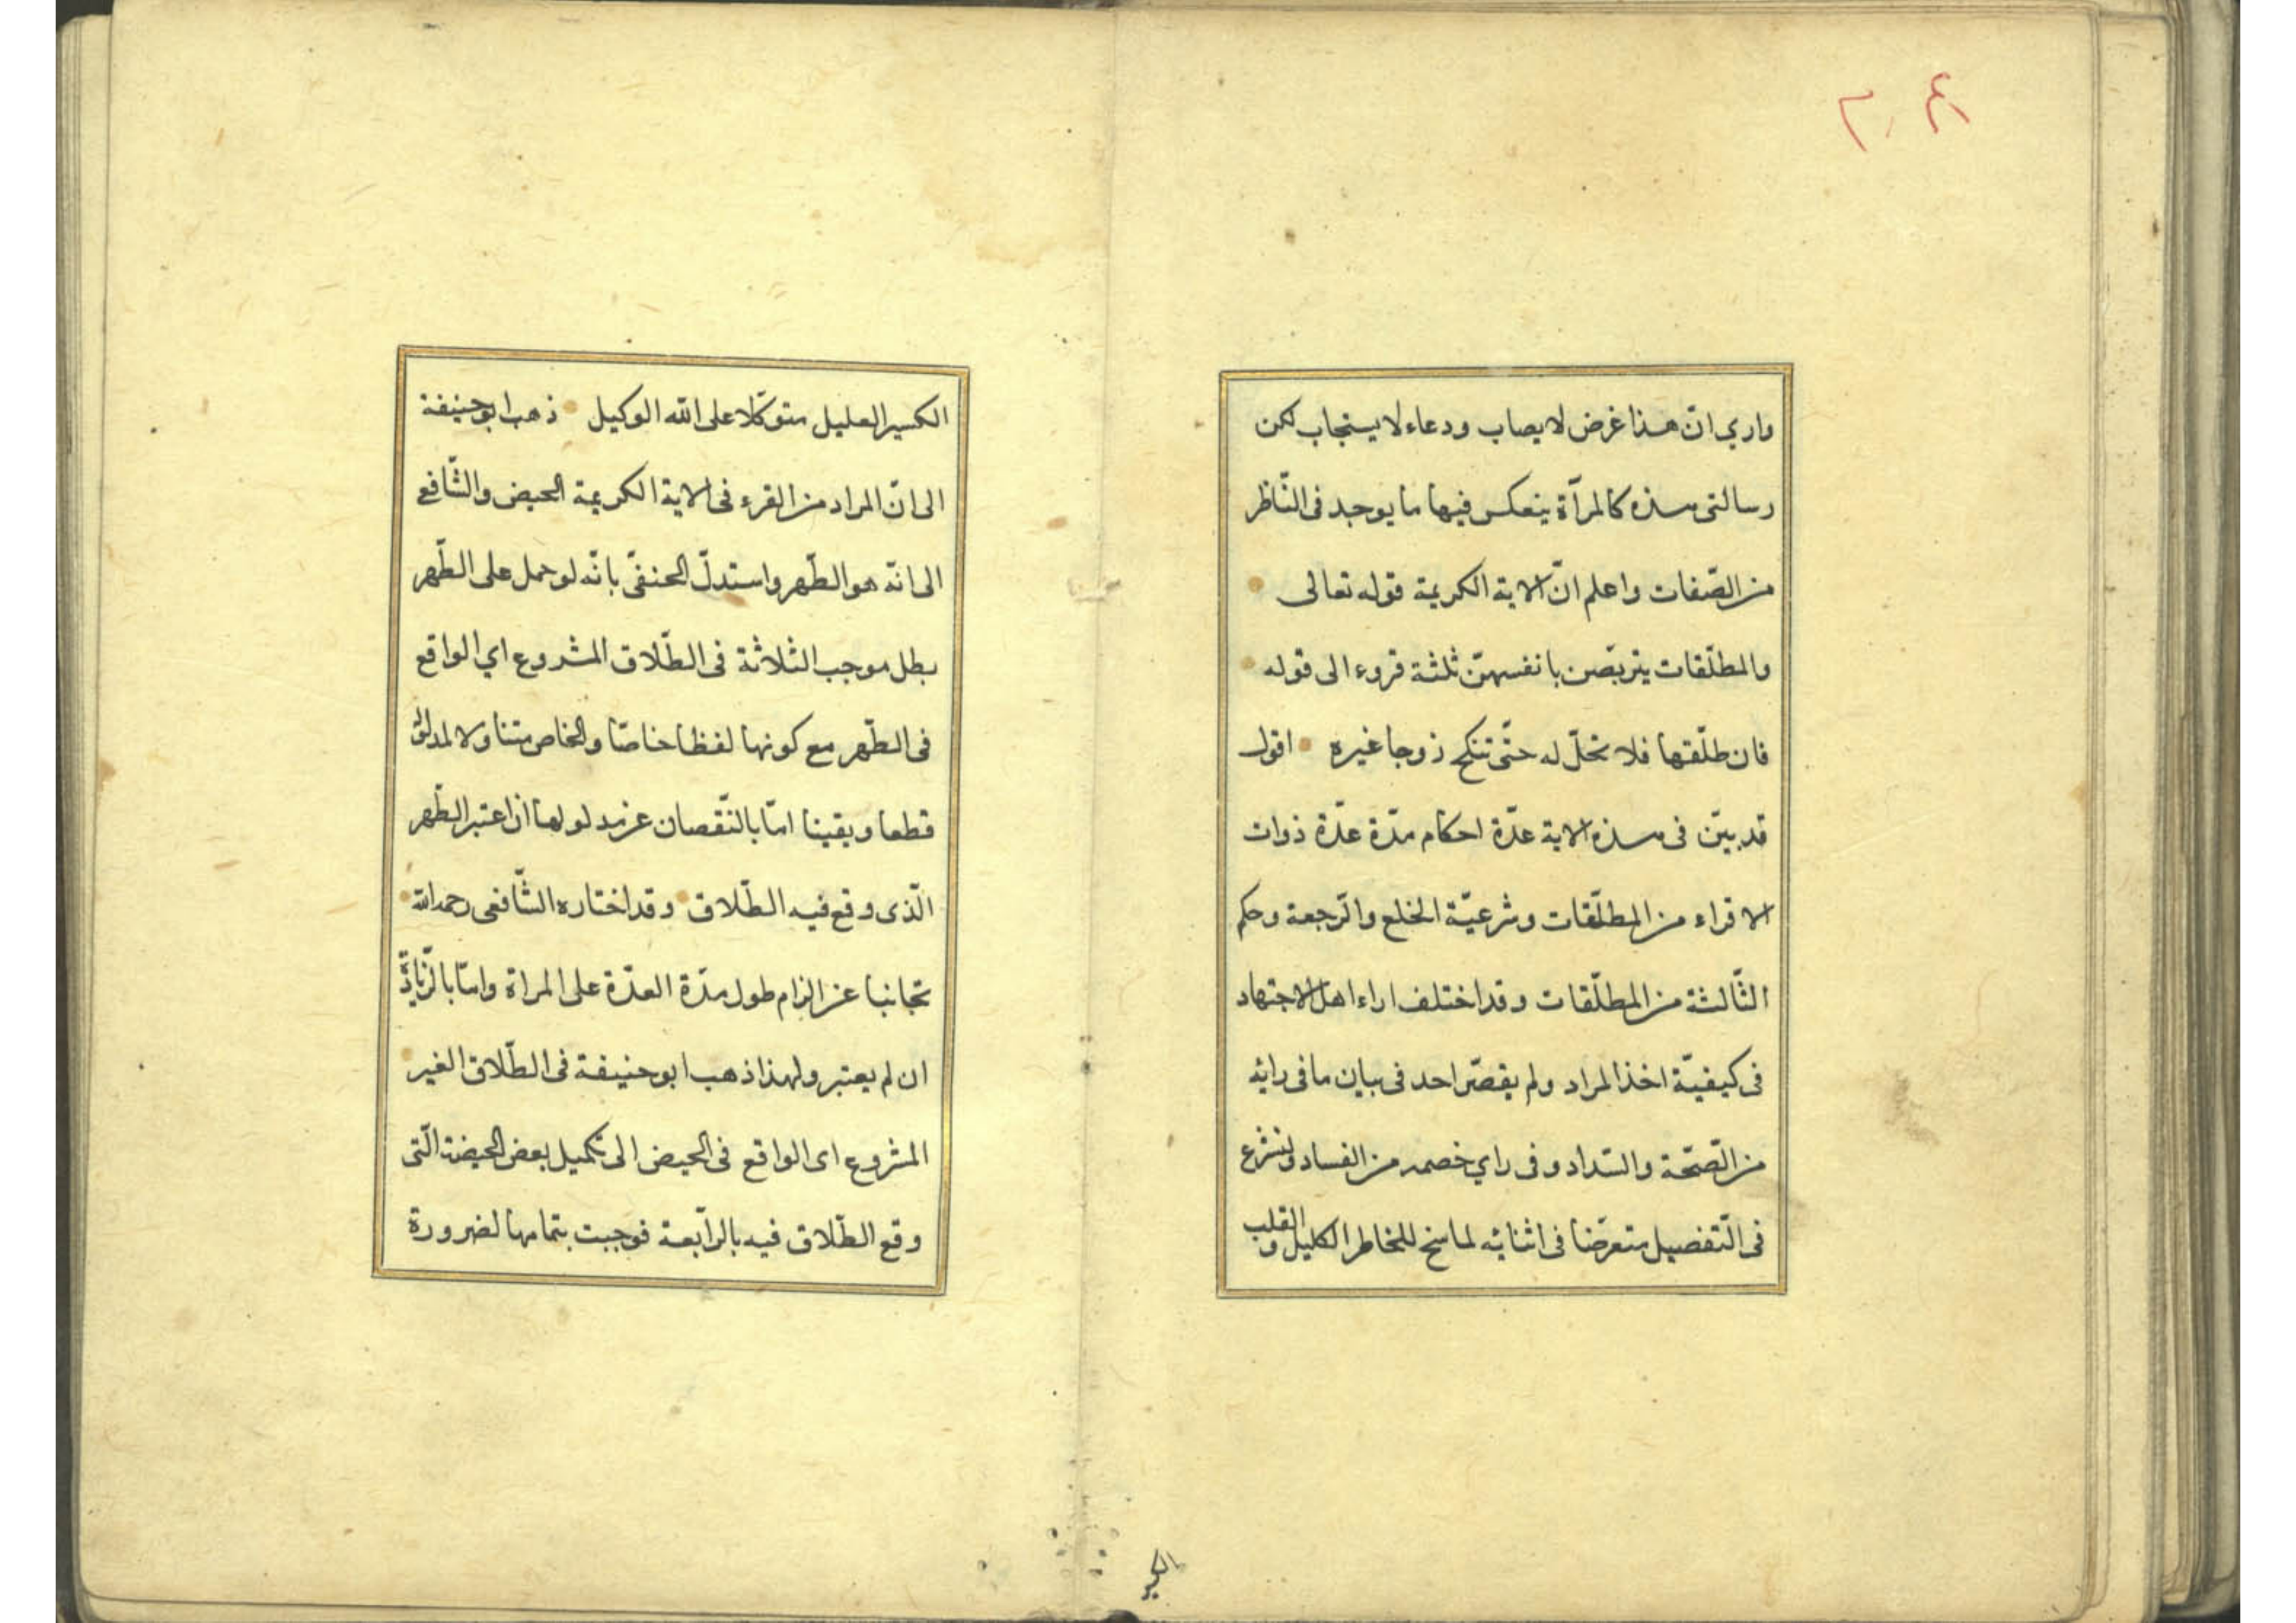 واري انّ هذا غرض لا يصاب ودعاء لا يستجاب لكن
رسالتى هذه كالمرآة ينعكس فيها ما يوجد فى النّاظر
من الصّفات واعلم انّ الاية الكريمة قوله تعالى
والمطلّقات يتربّصن بانفسهنّ ثلثة قروء الى قوله
فان طلّقها فلا تحلّ له حتّى تنكح زوجا غيره اقول
قد بيّن فى هذه الاية عدّة احكام مدّة عدّة ذوات
الاقراء من المطلّقات وشرعيّة الخلع والرّجعة وحكم
الثّالثة من المطلّقات وقد اختلف اراء اهل الاجتهاد
فى كيفيّة اخذ المراد ولم يقصّر احد فى بيان ما فى رايه
من الصّحّة والسّداد وفى راي خصمه من الفساد ولنشرع
فى التّفصيل متعرّضا فى اثنايه لما سنح للخاطر الكليل والقلب
الكسير
الكسير العليل متوكّلا على الله الوكيل ذهب ابو حنيفة
الى انّ المراد من القرء فى الاية الكريمة الحيض والشّافع
الى انّه هو الطّهر واستدلّ الحنفىّ بانّه لو حمل على الطّهر
بطل موجب الثلاثة فى الطّلاق المشروع اي الواقع
فى الطّهر مع كونها لفظا خاصّا والخاص متناولا لمدلوله
قطعا ويقينا امّا بالنّقصان عن مدلولها ان اعتبر الطّهر
الّذى وقع فيه الطّلاق وقد اختاره الشّافعى رحمه الله
تجانبا عن الزام طول مدّة العدّة على المراة وامّا بالزّيادة
ان لم يعتبر ولهذا ذهب ابو حنيفة فى الطّلاق الغير
المشروع اى الواقع فى الحيض الى تكميل بعض الحيضة الّتى
وقع الطّلاق فيه بالرّابعة فوجبت بتمامها لضرورة